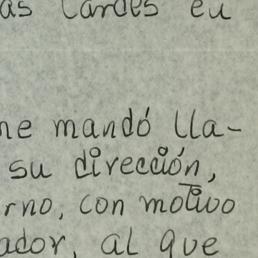 as tardes eu
me mandó lla-
su dirección,
rno, con motivo
ador, al que